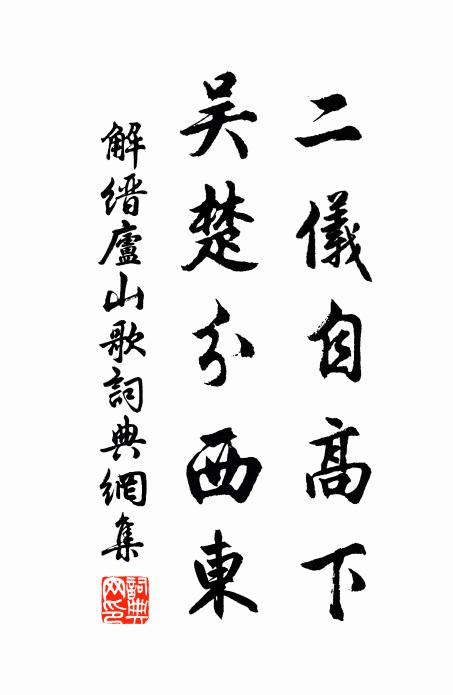 二儀自高下
吴楚分西東
解缙廬山歌詞典網集
詞典網印